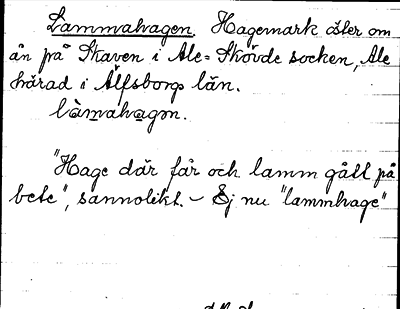 Lammahagen. Hagemark öster om
ån på Skaven i Ale-Skövde socken, Ale
härad i Älfsborgs län.
làmahagɷn.
"Hage där får och lamm gått på
bete", sannolikt. – Ej nu "lammhage"